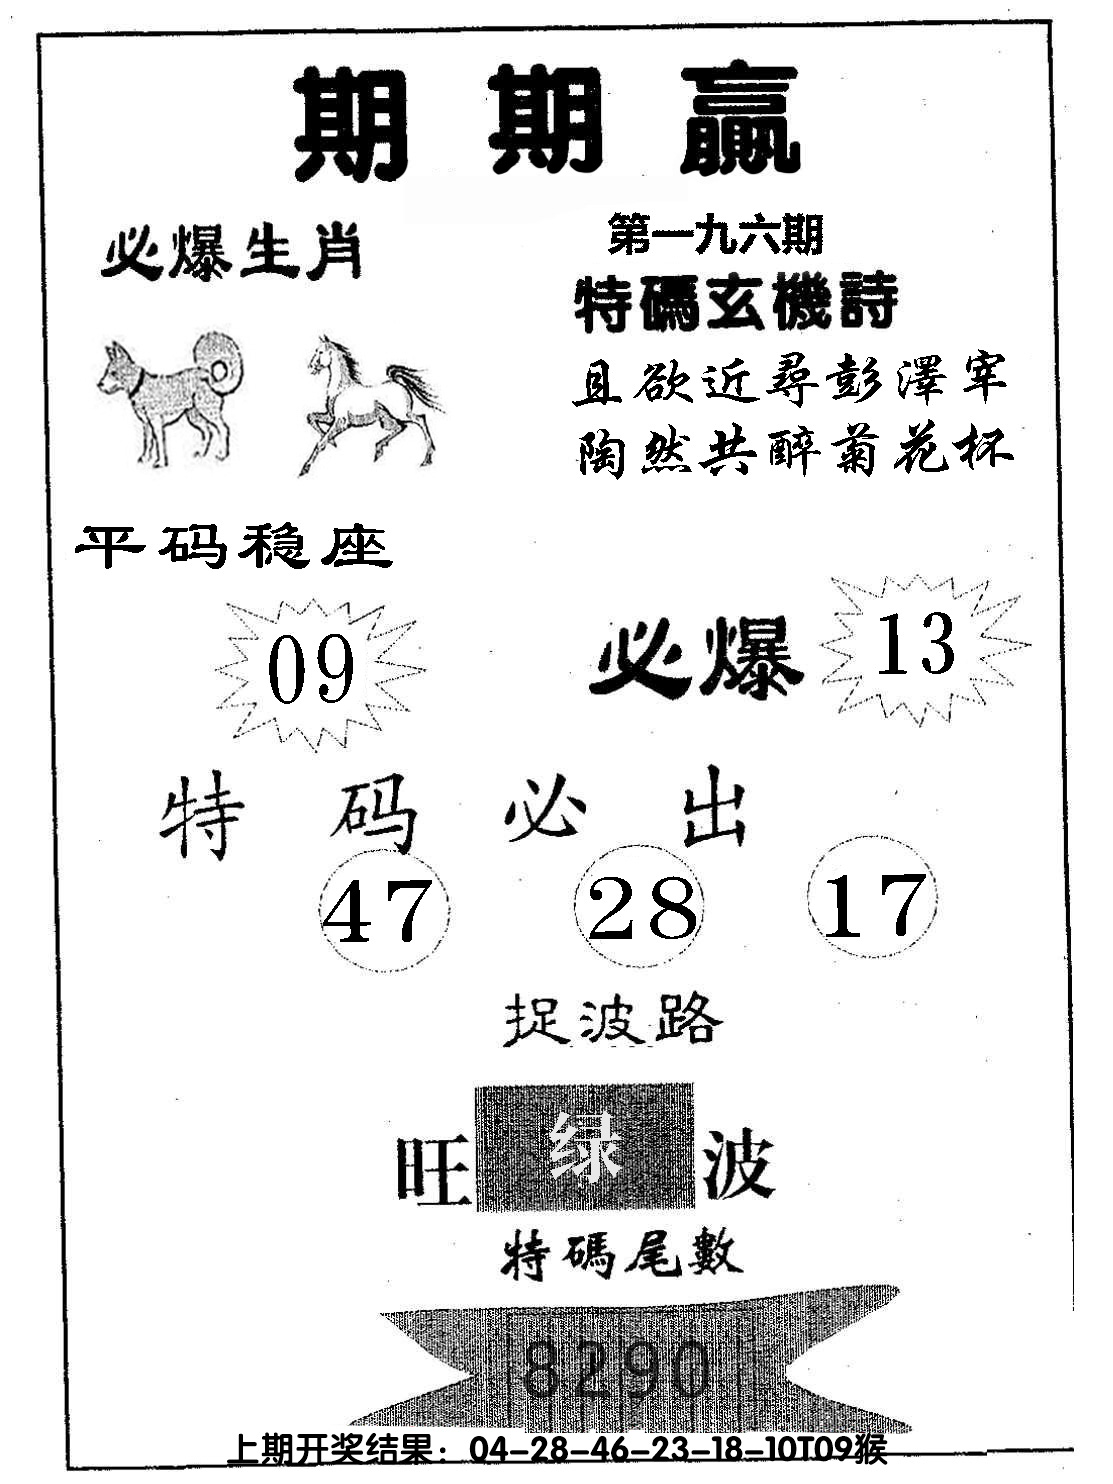 期期贏
必爆生肖
第一九六期
特碼玄機詩
且欲近尋彭澤宰
陶然共醉菊花杯
平码稳座
09
必爆
13
特码必出
47 28 17
捉波路
旺绿波
特碼尾數
8290
上期开奖结果：04-28-46-23-18-10T09猴